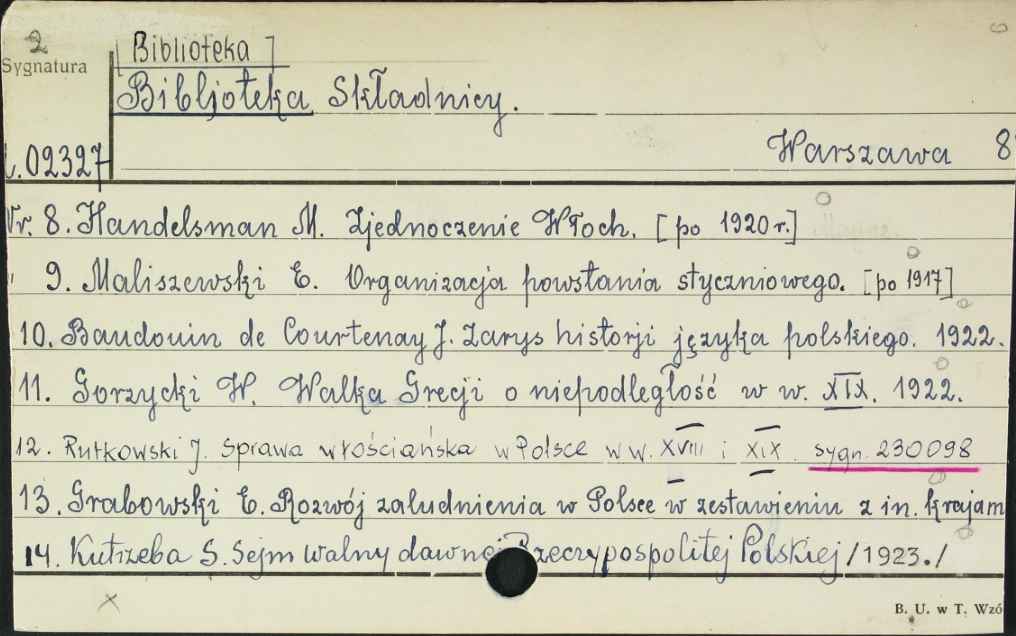 2
[Biblioteka]
Sygnatura
Bibljoteka Składnicy.
Warszawa 8
.02327
Nr. 8. Handelsman M. Zjednoczenie Włoch. [po 1920 r.]
" 9. Maliszewski E. Organizacja powstania styczniowego. [po 1917]
10. Baudouin de Courtenay J. Zarys historji języka polskiego. 1922.
11. Gorzycki W. Walka Grecji o niepodległość w w. XIX. 1922.
12. Rutkowski J. Sprawa włościańska w Polsce w w. XVIII i XIX. sygn. 230098
13. Grabowski E. Rozwój zaludnienia w Polsce w zestawieniu z in. krajam
14. Kutrzeba S. Sejm walny dawnej Rzeczypospolitej Polskiej /1923./
B. U. w T. Wzó